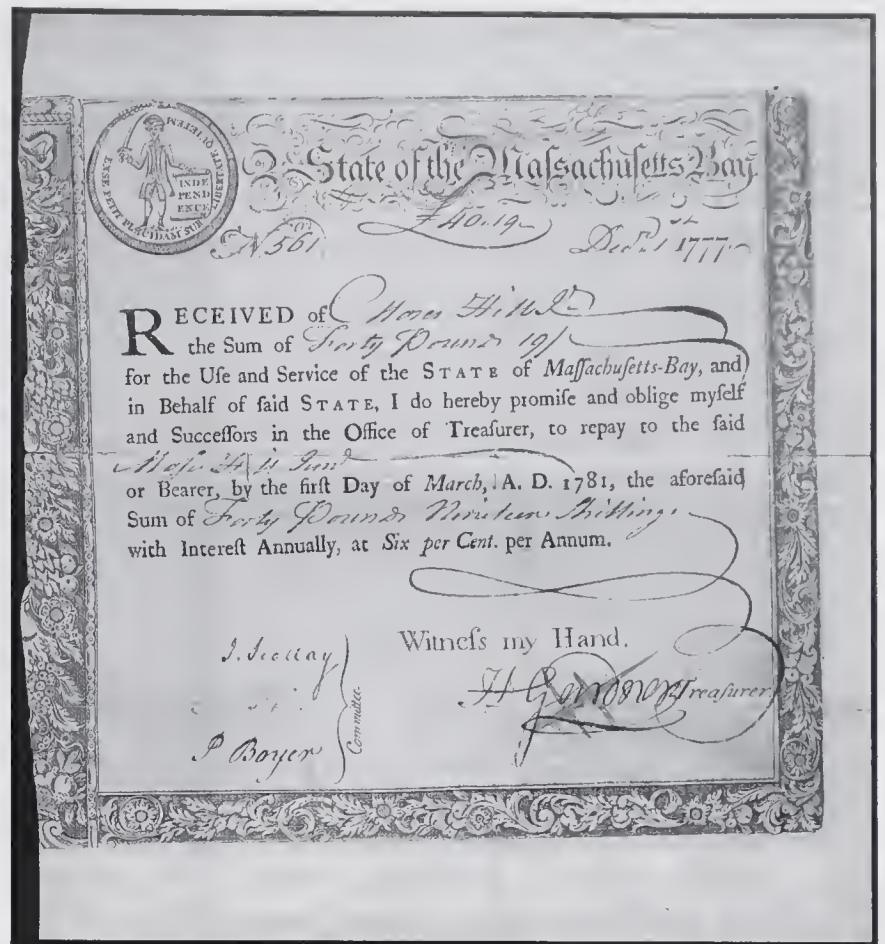 ENSE PETIT PLACIDAM SUB LIBERTATE QUIETEM
INDE
PEND
ENCE
State of the Maſsachuſetts Bay
No. 561
£40.19
Decr. 1st 1777
RECEIVED of Moses Hill Jr
the Sum of Forty Pounds 19/
for the Uſe and Service of the STATE of Maſſachuſetts-Bay, and
in Behalf of ſaid STATE, I do hereby promiſe and oblige myſelf
and Succeſſors in the Office of Treaſurer, to repay to the ſaid
Moſes Hill Junr
or Bearer, by the firſt Day of March, A. D. 1781, the aforeſaid
Sum of Forty Pounds Nineteen Shillings
with Intereſt Annually, at Six per Cent. per Annum.
Witneſs my Hand.
J. Scollay
P Boyer
Committee.
H Gardner Treaſurer